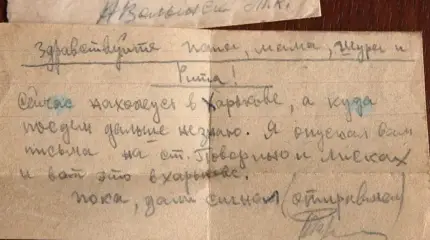 Здравствуйте папа, мама, Шура и
Рита!
Сейчас нахожусь в Харькове, а куда
поедем дальше незнаю. Я опускал вам
письма на ст. Поворино и Лисках
и вот это в
пока, ваш (отправляем)